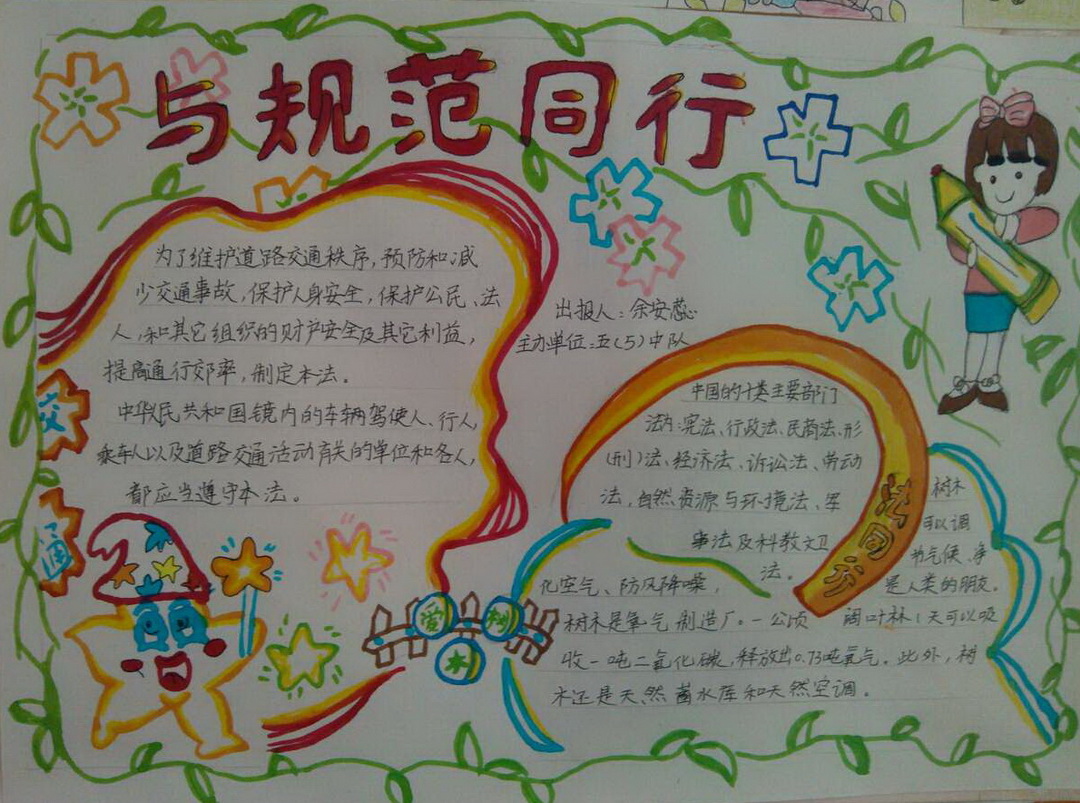 与规范同行
为了维护道路交通秩序，预防和减
少交通事故，保护人身安全，保护公民、法
人，和其它组织的财产安全及其它利益，
提高通行效率，制定本法。
中华人民共和国镜内的车辆驾使人、行人，
乘车人以及道路交通活动有关的单位和各人，
都应当遵守本法。
交
通
出报人：余安蕊
主办单位：五（5）中队
中国的十类主要部门
法：宪法、行政法、民商法、形
（刑）法、经济法、诉讼法、劳动
法，自然资源与环境法、军
事法及科教文卫
法。
法同行
爱树木
树木
可以调
节气候、净
化空气、防风降噪，是人类的朋友。
树木是氧气制造厂。一公顷阔叶林1天可以吸
收一吨二氧化碳，释放出0.73吨氧气。此外，树
木还是天然蓄水库和天然空调。